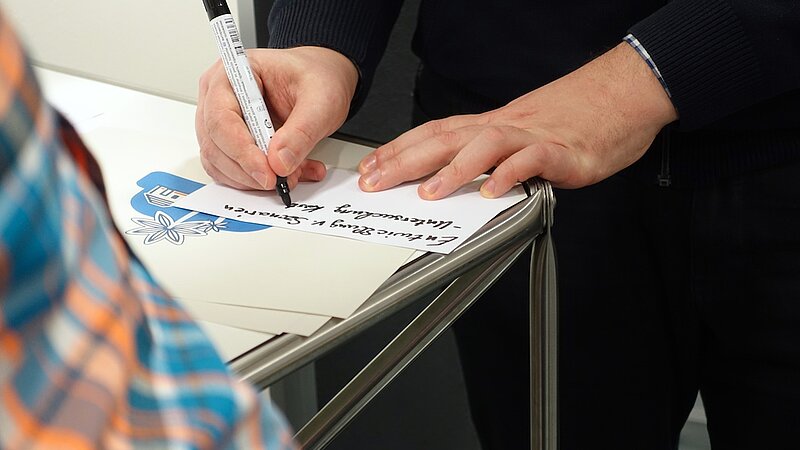 Entwicklung v. Szenarien
- Untersuchung